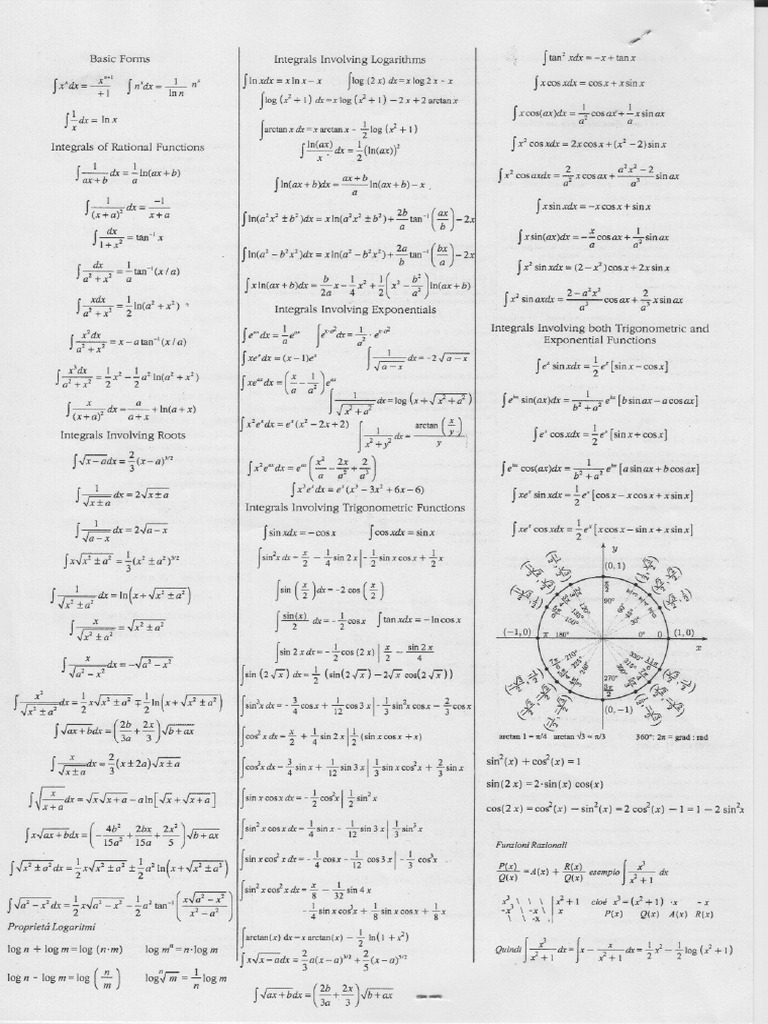 Basic Forms
∫xⁿdx = xⁿ⁺¹/+1   ∫nˣdx = 1/ln n nˣ
∫1/x dx = ln x
Integrals of Rational Functions
∫1/(ax+b) dx = 1/a ln(ax+b)
∫1/(x+a)² dx = −1/(x+a)
∫dx/(1+x²) = tan⁻¹ x
∫dx/(a²+x²) = 1/a tan⁻¹(x/a)
∫xdx/(a²+x²) = 1/2 ln(a²+x²)
∫x²dx/(a²+x²) = x − a tan⁻¹(x/a)
∫x³dx/(a²+x²) = 1/2 x² − 1/2 a² ln(a²+x²)
∫x/(x+a)² dx = a/(a+x) + ln(a+x)
Integrals Involving Roots
∫√(x−a)dx = 2/3 (x−a)^3/2
∫1/√(x±a) dx = 2√(x±a)
∫1/√(a−x) dx = 2√(a−x)
∫x√(x²±a²) = 1/3 (x²±a²)^3/2
∫1/√(x²±a²) dx = ln(x+√(x²±a²))
∫x/√(x²±a²) = √(x²±a²)
∫x/√(a²−x²) dx = −√(a²−x²)
∫x²/√(x²±a²) dx = 1/2 x√(x²±a²) ∓ 1/2 ln(x+√(x²±a²))
∫√(ax+b)dx = (2b/3a + 2x/3)√(b+ax)
∫x/√(x±a) dx = 2/3 (x±2a)√(x±a)
∫√(x/(x+a)) dx = √x√(x+a) − a ln[√x+√(x+a)]
∫x√(ax+b)dx = (−4b²/15a² + 2bx/15a + 2x²/5)√(b+ax)
∫√(x²±a²)dx = 1/2 x√(x²±a²) ± 1/2 a² ln(x+√(x²±a²))
∫√(a²−x²)dx = 1/2 x√(a²−x²) − 1/2 a² tan⁻¹(x√(a²−x²)/(x²−a²))
Proprietà Logaritmi
log n + log m = log (n·m)   log mⁿ = n·log m
log n − log m = log (n/m)   log ⁿ√m = 1/n log m
Integrals Involving Logarithms
∫ln xdx = x ln x − x   ∫log (2 x) dx = x log 2 x − x
∫log (x²+1) dx = x log (x²+1) − 2 x + 2 arctan x
∫arctan x dx = x arctan x − 1/2 log (x²+1)
∫ln(ax)/x dx = 1/2 (ln(ax))²
∫ln(ax+b)dx = (ax+b)/a ln(ax+b) − x
∫ln(a²x²±b²)dx = x ln(a²x²±b²) + 2b/a tan⁻¹(ax/b) − 2x
∫ln(a²−b²x²)dx = x ln(a²−b²x²) + 2a/b tan⁻¹(bx/a) − 2x
∫x ln(ax+b)dx = b/2a x − 1/4 x² + 1/2 (x² − b²/a²) ln(ax+b)
Integrals Involving Exponentials
∫eᵃˣdx = 1/a eᵃˣ
∫xeˣdx = (x−1)eˣ   ∫1/√(a−x) dx = −2√(a−x)
∫xeᵃˣdx = (x/a − 1/a²)eᵃˣ
∫1/√(x²+a²) dx = log (x+√(x²+a²))
∫x²eˣdx = eˣ(x²−2x+2)   ∫1/(x²+y²) dx = arctan (x/y)/y
∫x²eᵃˣdx = eᵃˣ(x²/a − 2x/a² + 2/a³)
∫x³eˣdx = eˣ(x³−3x²+6x−6)
Integrals Involving Trigonometric Functions
∫sin xdx = −cos x   ∫cos xdx = sin x
∫sin²x dx = x/2 − 1/4 sin 2 x | −1/2 sin x cos x + 1/2 x
∫sin (x/2) dx = −2 cos (x/2)
∫sin(x)/2 dx = −1/2 cos x   ∫tan xdx = −ln cos x
∫sin 2 x dx = −1/2 cos (2 x) | x/2 − sin 2 x/4
∫sin (2√x) dx = 1/2 (sin(2√x) − 2√x cos(2√x))
∫sin³x dx = −3/4 cos x + 1/12 cos 3 x | −1/3 sin²x cos x − 2/3 cos x
∫cos²x dx = x/2 + 1/4 sin 2 x | 1/2 (sin x cos x + x)
∫cos³x dx = 3/4 sin x + 1/12 sin 3 x | 1/3 sin x cos²x + 2/3 sin x
∫sin x cos x dx = −1/2 cos²x | 1/2 sin²x
∫sin²x cos x dx = 1/4 sin x − 1/12 sin 3 x | 1/3 sin³x
∫sin x cos²x dx = −1/4 cos x − 1/12 cos 3 x | −1/3 cos³x
∫sin²x cos²x dx = x/8 − 1/32 sin 4 x
−1/4 sin x cos³x + 1/8 sin x cos x + 1/8 x
∫arctan(x) dx = x arctan(x) − 1/2 ln(1+x²)
∫x√(x−a)dx = 2/3 a(x−a)^3/2 + 2/5 (x−a)^5/2
∫√(ax+b)dx = (2b/3a + 2x/3)√(b+ax)
∫tan² xdx = −x + tan x
∫x cos xdx = cos x + x sin x
∫x cos(ax)dx = 1/a² cos ax + 1/a x sin ax
∫x² cos xdx = 2x cos x + (x²−2) sin x
∫x² cos axdx = 2/a² x cos ax + (a²x²−2)/a³ sin ax
∫x sin xdx = −x cos x + sin x
∫x sin(ax)dx = −x/a cos ax + 1/a² sin ax
∫x² sin xdx = (2−x²)cos x + 2x sin x
∫x² sin axdx = (2−a²x²)/a³ cos ax + 2/a² x sin ax
Integrals Involving both Trigonometric and
Exponential Functions
∫eˣ sin xdx = 1/2 eˣ[sin x − cos x]
∫eᵇˣ sin(ax)dx = 1/(b²+a²) eᵇˣ[b sin ax − a cos ax]
∫eˣ cos xdx = 1/2 eˣ[sin x + cos x]
∫eᵇˣ cos(ax)dx = 1/(b²+a²) eᵇˣ[a sin ax + b cos ax]
∫xeˣ sin xdx = 1/2 eˣ[cos x − x cos x + x sin x]
∫xeˣ cos xdx = 1/2 eˣ[x cos x − sin x + x sin x]
y
(0, 1)
π/2
90°
120°
150°
(−1, 0) π 180° 0° 0 (1, 0)
x
210°
225°
240°
330°
315°
300°
270°
3π/2
(0, −1)
arctan 1 = π/4   arctan √3 = π/3   360°: 2π = grad : rad
sin²(x) + cos²(x) = 1
sin(2 x) = 2·sin(x) cos(x)
cos(2 x) = cos²(x) − sin²(x) = 2 cos²(x) − 1 = 1 − 2 sin²x
Funzioni Razionali
P(x)/Q(x) = A(x) + R(x)/Q(x)   esempio ∫x³/(x²+1) dx
x³ \ \ \ | x²+1   cioè x³ = (x²+1) ·x −x
−x³ \ −x \ | x   P(x) Q(x) A(x) R(x)
\ \ −x \
Quindi ∫x³/(x²+1) dx = ∫x − x/(x²+1) dx = 1/2 x² − 1/2 log (x²+1)